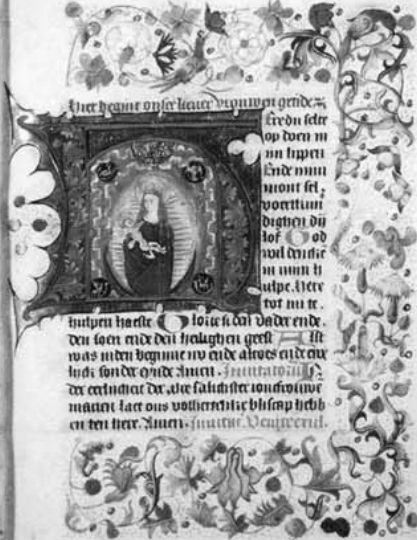 Hier begint onser liever vrouwen getide
Here du selte
op doen m
yn lippen
Ende mijn
mont sel
voertkun
dighen dij
lof God
wil dencke
in mijn h
ulpe Here
tot mi te
hulpen haeste Glorie si den vader ende
den soen ende den heilighen geest Alst
was inden beginne nu ende altoes ende ewe
lijck sonder eynde Amen Invitatoriu
der eerlicheit der alre salichster joncfrouwe
marien laet ons volhertelike bliscap hebb
en den here Amen Venite